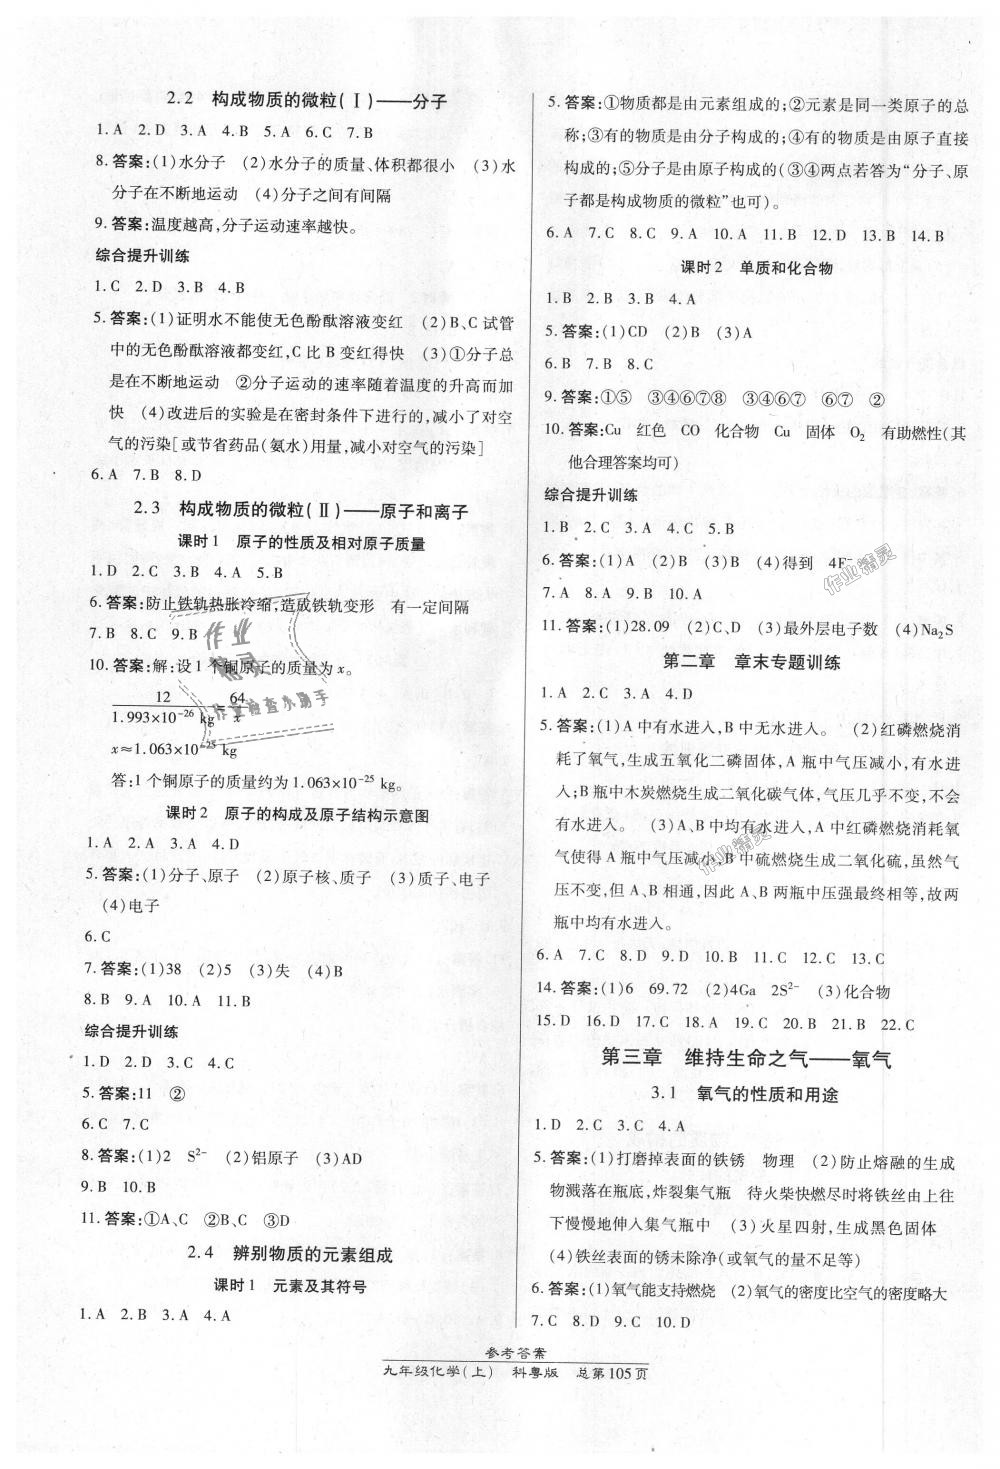 2.2 构成物质的微粒(Ⅰ)——分子
1. A 2. D 3. A 4. B 5. A 6. C 7. B
8. 答案:(1)水分子 (2)水分子的质量、体积都很小 (3)水
分子在不断地运动 (4)分子之间有间隔
9. 答案:温度越高,分子运动速率越快。
综合提升训练
1. C 2. D 3. B 4. B
5. 答案:(1)证明水不能使无色酚酞溶液变红 (2)B、C 试管
中的无色酚酞溶液都变红,C 比 B 变红得快 (3)①分子总
是在不断地运动 ②分子运动的速率随着温度的升高而加
快 (4)改进后的实验是在密封条件下进行的,减小了对空
气的污染[或节省药品(氨水)用量,减小对空气的污染]
6. A 7. B 8. D
2.3 构成物质的微粒(Ⅱ)——原子和离子
课时1 原子的性质及相对原子质量
1. D 2. C 3. B 4. A 5. B
6. 答案:防止铁轨热胀冷缩,造成铁轨变形 有一定间隔
7. B 8. C 9. B
10. 答案:解:设 1 个铜原子的质量为 x。
12/1.993×10⁻²⁶ kg = 64/x
x≈1.063×10⁻²⁵ kg
答:1 个铜原子的质量约为 1.063×10⁻²⁵ kg。
课时2 原子的构成及原子结构示意图
1. A 2. A 3. A 4. D
5. 答案:(1)分子、原子 (2)原子核、质子 (3)质子、电子
(4)电子
6. C
7. 答案:(1)38 (2)5 (3)失 (4)B
8. B 9. A 10. A 11. B
综合提升训练
1. D 2. D 3. C 4. C
5. 答案:11 ②
6. C 7. C
8. 答案:(1)2 S²⁻ (2)铝原子 (3)AD
9. B 10. B
11. 答案:①A、C ②B、C ③D
2.4 辨别物质的元素组成
课时1 元素及其符号
1. A 2. B 3. A 4. A
5. 答案:①物质都是由元素组成的;②元素是同一类原子的总
称;③有的物质是由分子构成的;④有的物质是由原子直接
构成的;⑤分子是由原子构成的(③④两点若答为“分子、原
子都是构成物质的微粒”也可)。
6. A 7. C 8. C 9. A 10. A 11. B 12. D 13. B 14. B
课时2 单质和化合物
1. B 2. B 3. B 4. A
5. 答案:(1)CD (2)B (3)A
6. B 7. B 8. C
9. 答案:①⑤ ③④⑥⑦⑧ ③④⑥⑦ ②
10. 答案:Cu 红色 CO 化合物 Cu 固体 O₂ 有助燃性(其
他合理答案均可)
综合提升训练
1. B 2. C 3. A 4. C 5. B
6. 答案:(1)A (2)B (3)B (4)得到 4F⁻
7. A 8. A 9. B 10. A
11. 答案:(1)28.09 (2)C、D (3)最外层电子数 (4)Na₂S
第二章 章末专题训练
1. A 2. C 3. A 4. D
5. 答案:(1)A 中有水进入,B 中无水进入。 (2)红磷燃烧消
耗了氧气,生成五氧化二磷固体,A 瓶中气压减小,有水进
入;B 瓶中木炭燃烧生成二氧化碳气体,气压几乎不变,不会
有水进入。 (3)A、B 中均有水进入,A 中红磷燃烧消耗氧
气使得 A 瓶中气压减小,B 中硫燃烧生成二氧化硫,虽然气
压不变,但 A、B 相通,因此 A、B 两瓶中压强最终相等,故两
瓶中均有水进入。
6. A 7. C 8. D 9. D 10. B 11. C 12. C 13. C
14. 答案:(1)6 69.72 (2)4Ga 2S²⁻ (3)化合物
15. D 16. D 17. C 18. A 19. C 20. B 21. B 22. C
第三章 维持生命之气——氧气
3.1 氧气的性质和用途
1. D 2. C 3. C 4. A
5. 答案:(1)打磨掉表面的铁锈 物理 (2)防止熔融的生成
物溅落在瓶底,炸裂集气瓶 待火柴快燃尽时将铁丝由上往
下慢慢地伸入集气瓶中 (3)火星四射,生成黑色固体
(4)铁丝表面的锈未除净(或氧气的量不足等)
6. 答案:(1)氧气能支持燃烧 (2)氧气的密度比空气的密度略大
7. C 8. D 9. C 10. D
参考答案
九年级化学(上) 科粤版 总第105页
作业精灵
作业检查小助手
作业精灵
作业精灵